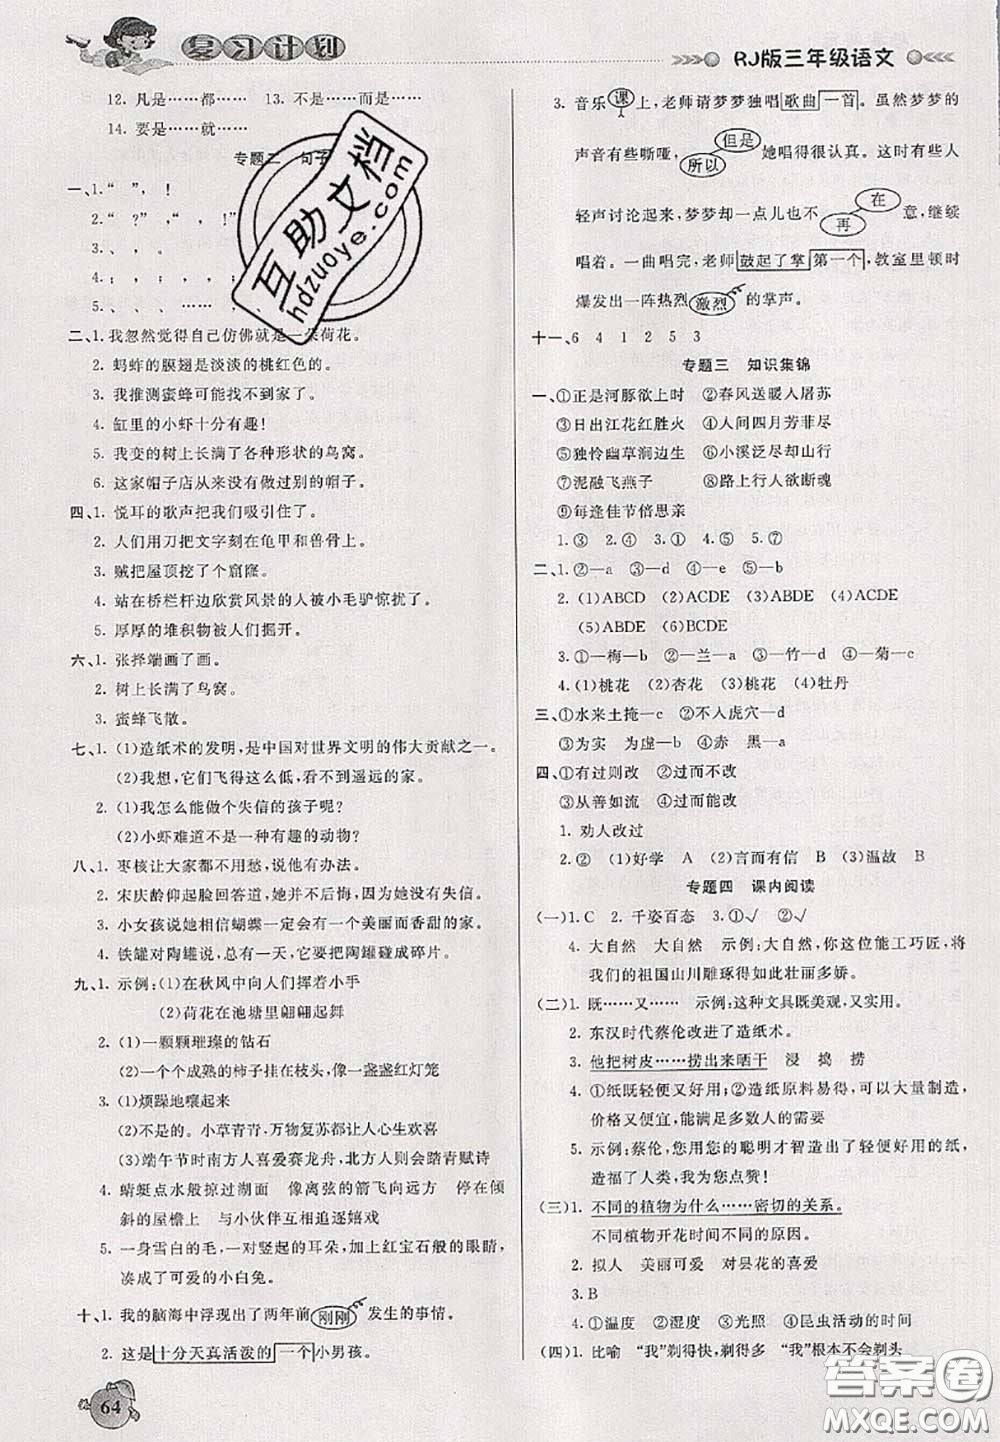 复习计划
RJ版三年级语文
12. 凡是……都…… 13. 不是……而是……
14. 要是……就……
专题二 句子
一、1. “ ”，！
2. “ ？”，“ ， ！
3. ， ， 。
4. ； ， ， ， ，
5. 、 。 …… ， 。
二、1. 我忽然觉得自己仿佛就是一朵荷花。
2. 蚂蚱的膜翅是淡淡的桃红色的。
3. 我推测蜜蜂可能找不到家了。
4. 缸里的小虾十分有趣！
5. 我变的树上长满了各种形状的鸟窝。
6. 这家帽子店从来没有做过这么小的帽子。
四、1. 悦耳的歌声把我们吸引住了。
2. 人们用刀把文字刻在龟甲和兽骨上。
3. 贼把屋顶挖了个窟窿。
4. 站在桥栏杆边欣赏风景的人被小毛驴惊扰了。
5. 厚厚的堆积物被人们掘开。
六、1. 张择端画了画。
2. 树上长满了鸟窝。
3. 蜜蜂飞散。
七、1. (1)造纸术的发明，是中国对世界文明的伟大贡献之一。
(2)我想，它们飞得这么低，看不到遥远的家。
2. (1)我怎么能做个失信的孩子呢？
(2)小虾难道不是一种有趣的动物？
八、1. 枣核让大家都不用愁，说他有办法。
2. 宋庆龄仰起脸回答道，她并不后悔，因为她没有失信。
3. 小女孩说她相信蝴蝶一定会有一个美丽而香甜的家。
4. 铁罐对陶罐说，总有一天，它要把陶罐碰成碎片。
九、1. 示例：(1)在秋风中向人们挥着小手
(2)荷花在池塘里翩翩起舞
2. (1)一颗颗璀璨的钻石
(2)一个个成熟的柿子挂在枝头，像一盏盏红灯笼
3. (1)烦躁地嚷起来
(2)不是的。小草青青，万物复苏都让人心生欢喜
(3)端午节时南方人喜爱赛龙舟，北方人则会踏青赋诗
4. 蜻蜓点水般掠过湖面 像离弦的箭飞向远方 停在倾
斜的屋檐上 与小伙伴互相追逐嬉戏
5. 一身雪白的毛，一对竖起的耳朵，加上红宝石般的眼睛，
凑成了可爱的小白兔。
十、1. 我的脑海中浮现出了两年前刚刚发生的事情。
2. 这是十分天真活泼的一个小男孩。
64
3. 音乐课上，老师请梦梦独唱歌曲一首。虽然梦梦的
声音有些嘶哑，所以但是她唱得很认真。这时有些人
轻声讨论起来，梦梦却一点儿也不再在意，继续
唱着。一曲唱完，老师鼓起了掌第一个，教室里顿时
爆发出一阵热烈激烈的掌声。
十一、6 4 1 2 5 3
专题三 知识集锦
一、①正是河豚欲上时 ②春风送暖入屠苏
③日出江花红胜火 ④人间四月芳菲尽
⑤独怜幽草涧边生 ⑥小溪泛尽却山行
⑦泥融飞燕子 ⑧路上行人欲断魂
⑨每逢佳节倍思亲
1. ③ ④ 2. ⑥ 3. ① 4. ⑤ 5. ⑦
二、1. ②—a ③—d ④—c ⑤—b
2. (1)ABCD (2)ACDE (3)ABDE (4)ACDE
(5)ABDE (6)BCDE
3. ①—梅—b ②—兰—a ③—竹—d ④—菊—c
4. (1)桃花 (2)杏花 (3)桃花 (4)牡丹
三、①水来土掩—c ②不入虎穴—d
③为实 为虚—b ④赤 黑—a
四、①有过则改 ②过而不改
③从善如流 ④过而能改
1. 劝人改过
2. ② (1)好学 A (2)言而有信 B (3)温故 B
专题四 课内阅读
(一)1. C 2. 千姿百态 3. ①√ ②√
4. 大自然 大自然 示例：大自然，你这位能工巧匠，将
我们的祖国山川雕琢得如此壮丽多娇。
(二)1. 既……又…… 示例：这种文具既美观，又实用。
2. 东汉时代蔡伦改进了造纸术。
3. 他把树皮……捞出来晒干 浸 捣 捞
4. ①纸既轻便又好用；②造纸原料易得，可以大量制造，
价格又便宜，能满足多数人的需要
5. 示例：蔡伦，您用您的聪明才智造出了轻便好用的纸，
造福了人类，我为您点赞！
(三)1. 不同的植物为什么……密切的关系。
不同植物开花时间不同的原因。
2. 拟人 美丽可爱 对昙花的喜爱
3. B
4. ①温度 ②湿度 ③光照 ④昆虫活动的时间
(四)1. 比喻 “我”剃得快，剃得多 “我”根本不会剃头
互助文档
hdzuoye.com
答案圈
MXQE.COM